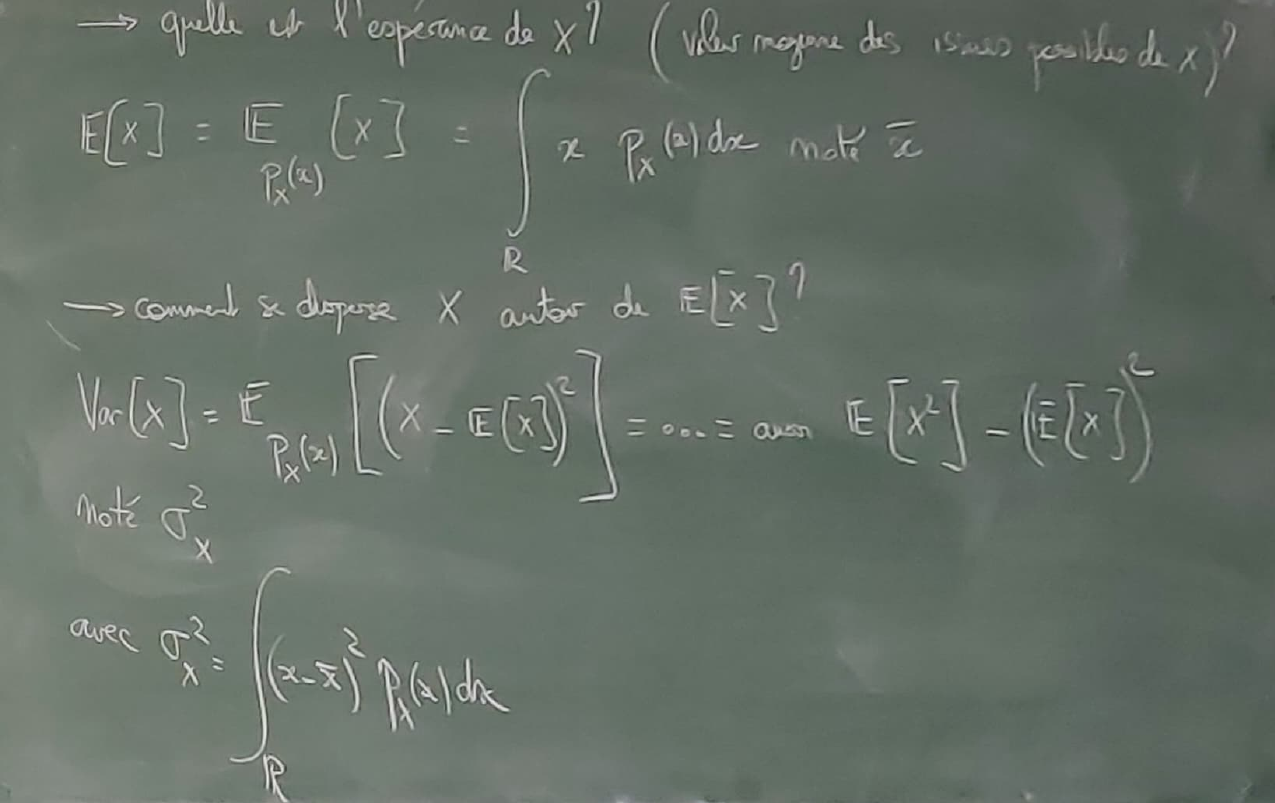 → quelle est l'espérance de X ? (valeur moyenne des issues possibles de X) ?
E[X] = E_{P_X(x)} [X] = ∫_ℝ x P_X(x) dx noté x̄
→ comment se disperse X autour de E[X] ?
Var[X] = E_{P_X(x)} [(X - E[X])²] = ... = aussi E[X²] - (E[X])²
noté σ_X²
avec σ_X² = ∫_ℝ (x - x̄)² P_X(x) dx